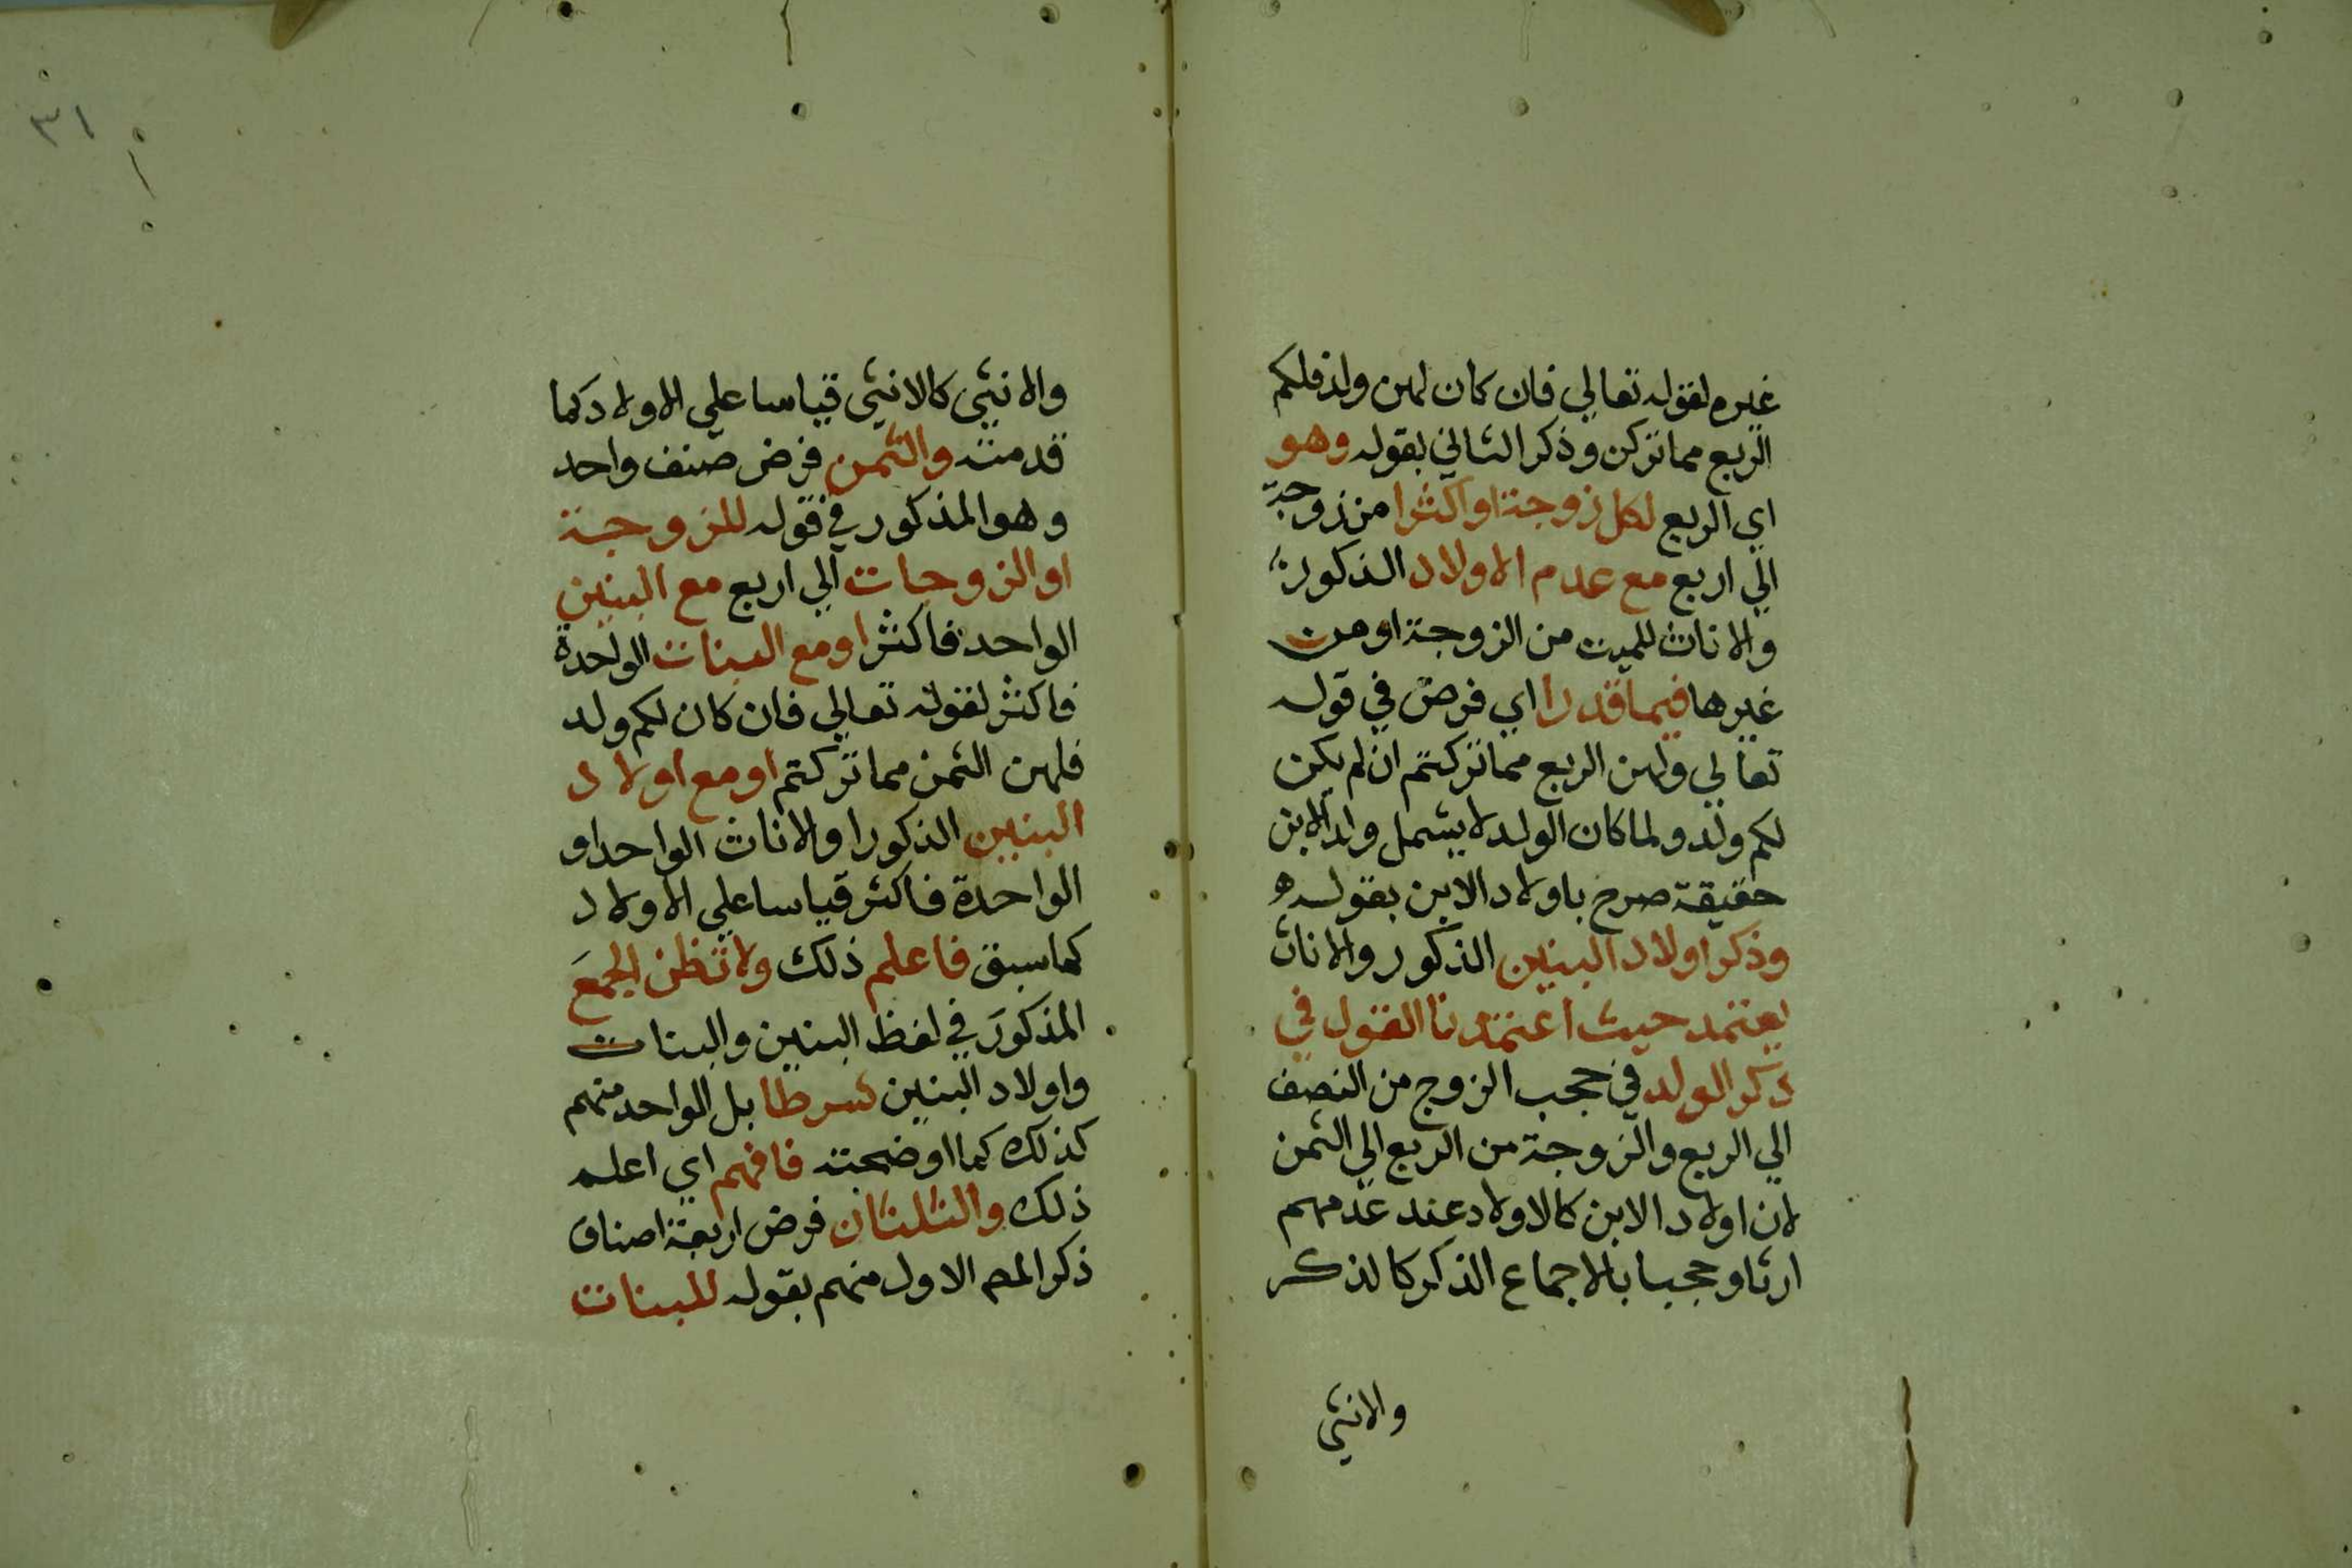 غيره لقوله تعالي فان كان لهن ولد فلكم
الربع مما تركن وذكر الثاني بقوله وهو
اي الربع لكل زوجة او اكثرا من زوجة
الي اربع مع عدم الاولاد الذكور
والاناث للميت من الزوجة او من
غيرها فيما قدرا اي فرض في قوله
تعالي ولهن الربع مما تركتم ان لم يكن
لكم ولد ولما كان الولد لا يشمل ولد الابن
حقيقة صرح باولاد الابن بقوله
وذكر اولاد البنين الذكور والاناث
يعتمد حيث اعتمدنا القول في
ذكر الولد في حجب الزوج من النصف
الي الربع والزوجة من الربع الي الثمن
لان اولاد الابن كالاولاد عند عدمهم
ارثا وحجبا بالاجماع الذكر كالذكر
والانثي
٣١
والانثي كالانثي قياسا علي الاولاد كما
قدمته والثمن فرض صنف واحد
وهو المذكور في قوله للزوجة
او الزوجات الي اربع مع البنين
الواحد فاكثر او مع البنات الواحدة
فاكثر لقوله تعالي فان كان لكم ولد
فلهن الثمن مما تركتم او مع اولاد
البنين الذكور او الاناث الواحد او
الواحدة فاكثر قياسا علي الاولاد
كما سبق فاعلم ذلك ولا تظن الجمع
المذكور في لفظ البنين والبنات
واولاد البنين شرطا بل الواحد منهم
كذلك كما اوضحته فافهم اي اعلم
ذلك والثلثان فرض اربعة اصناف
ذكر المص الاول منهم بقوله للبنات